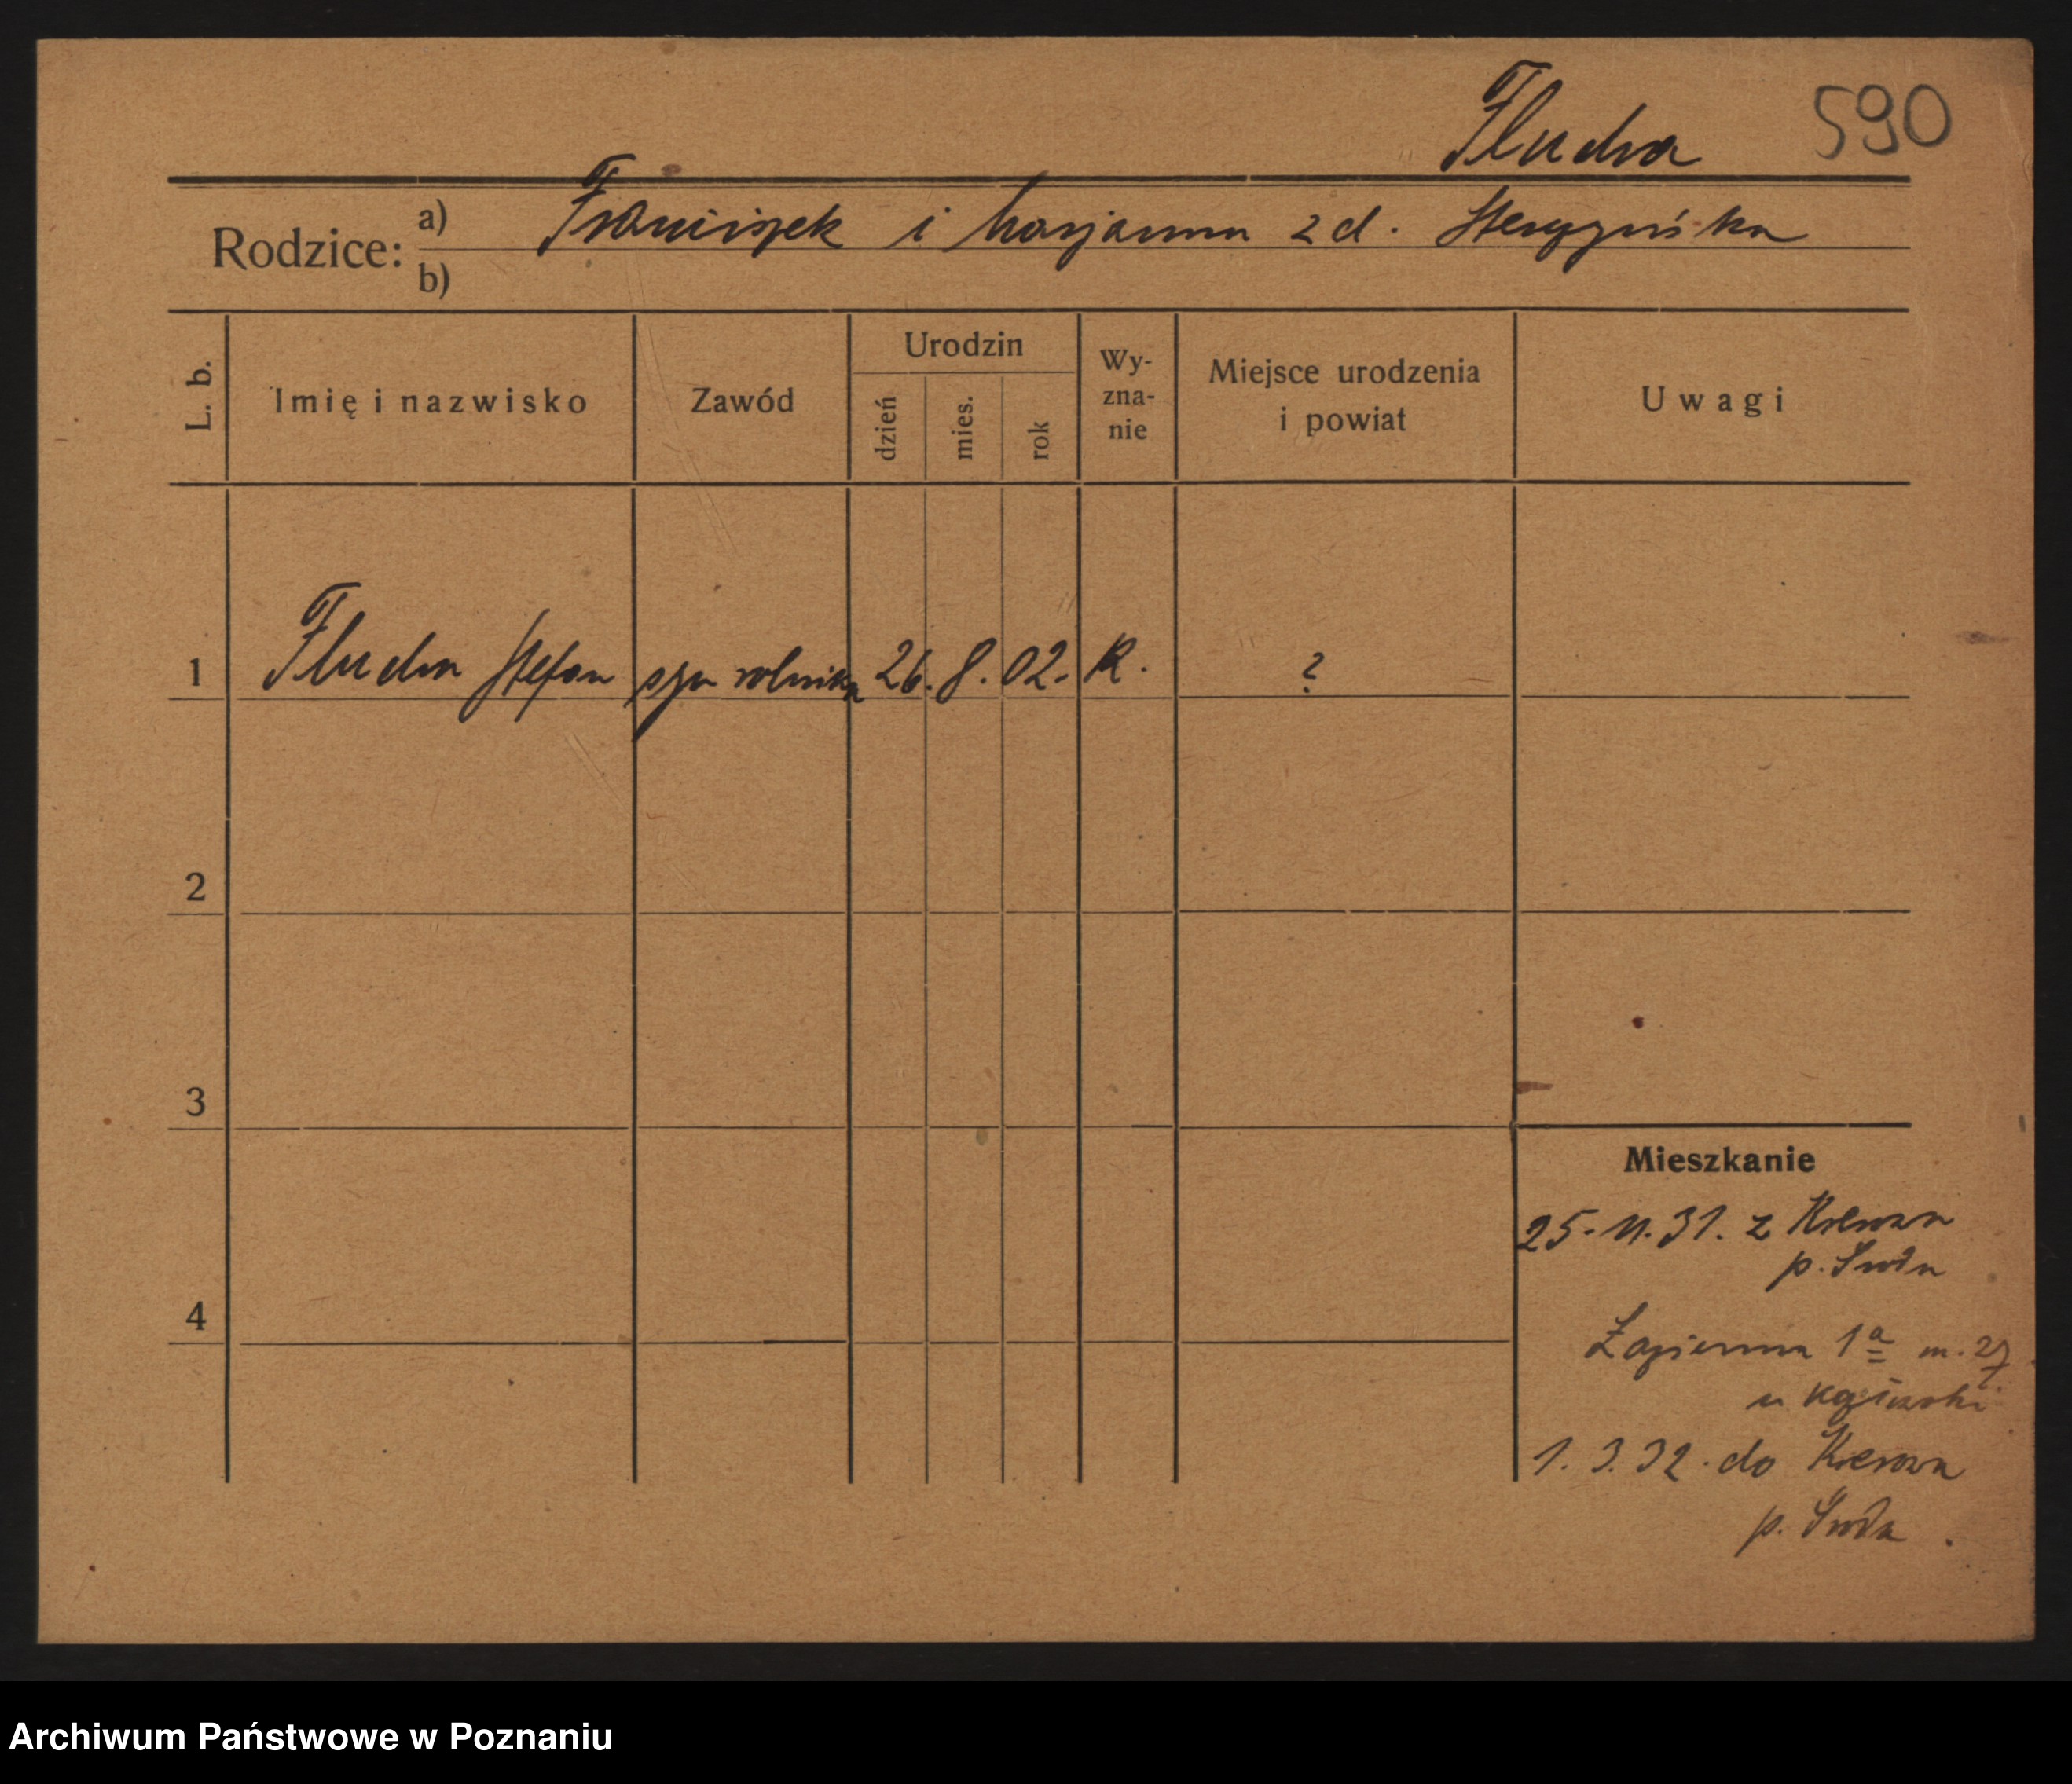 Fludra
590
Rodzice:
a) Franciszek i Marjanna z d.
b)
L. b.
Imię i nazwisko
Zawód
Urodzin
dzień
mies.
rok
Wy-
zna-
nie
Miejsce urodzenia
i powiat
Uwagi
1 Fludra Stefan syn rolnika 26. 8. 02. R. ?
2
3
4
Mieszkanie
25. 11. 31. z
p. Środa
Łazienna 1a m. 27
u
1. 3. 32. do
p. Środa.
Archiwum Państwowe w Poznaniu